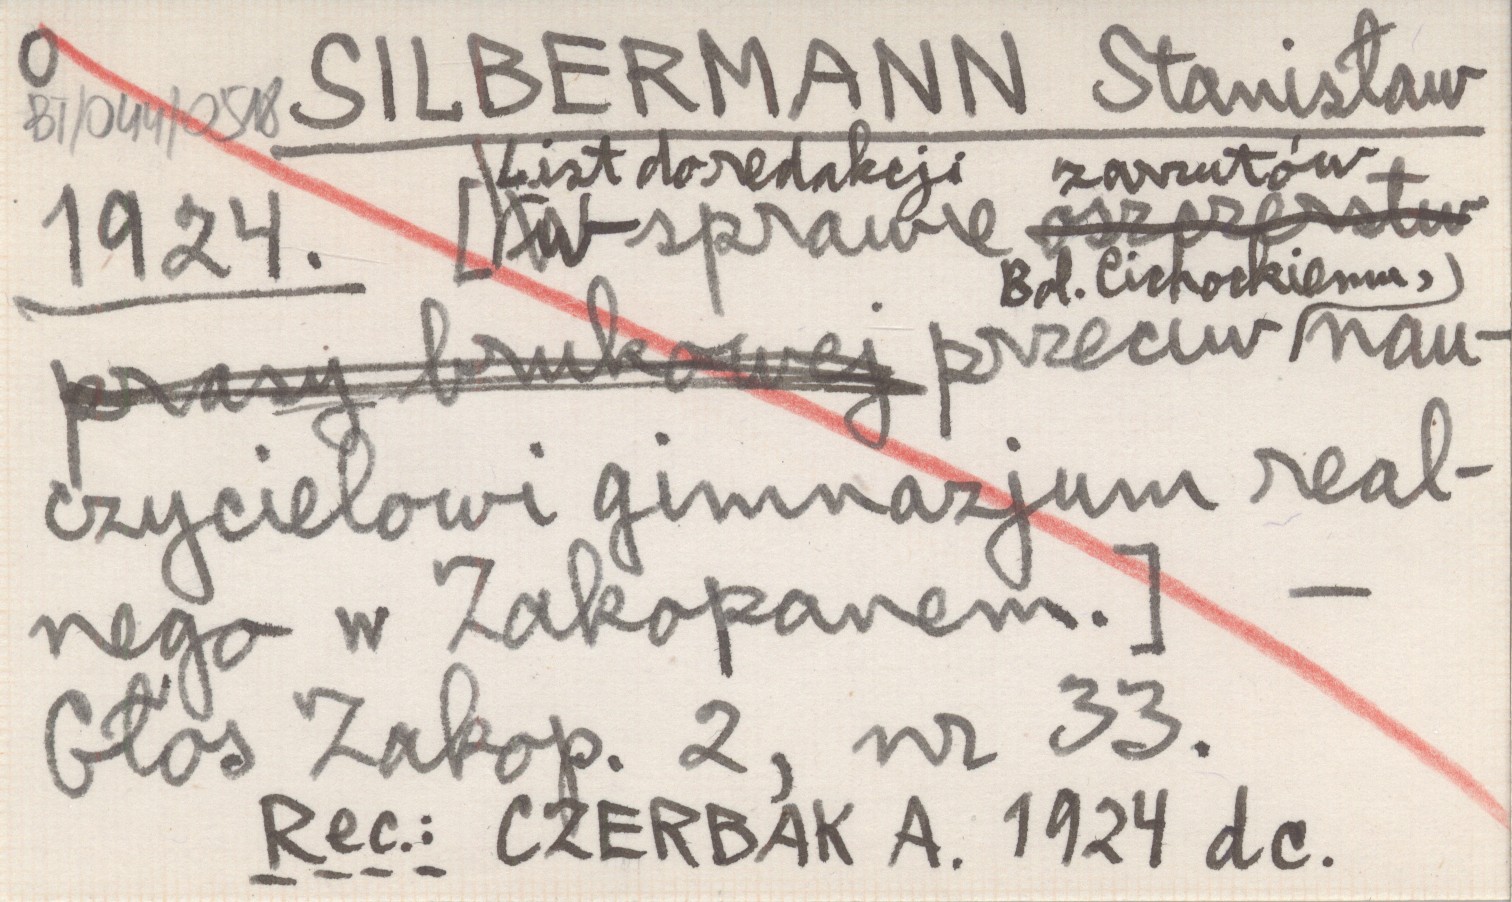 O
BT/044/0518
SILBERMANN Stanisław
List do redakcji zarzutów
1924. [W sprawie oszczerstw
Bol. Cichockiemu,
prasy brukowej przeciw nau-
czycielowi gimnazjum real-
nego w Zakopanem.] —
Głos Zakop. 2, nr 33.
Rec.: CZERBAK A. 1924 dc.